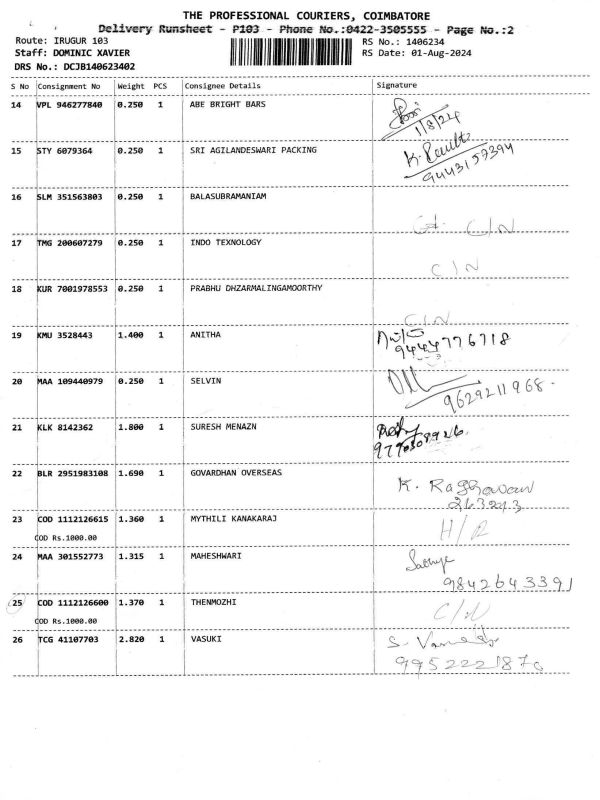 THE PROFESSIONAL COURIERS, COIMBATORE
Delivery Runsheet - P103 - Phone No.:0422-3505555 - Page No.:2
Route: IRUGUR 103 RS No.: 1406234
Staff: DOMINIC XAVIER RS Date: 01-Aug-2024
DRS No.: DCJB140623402
S No Consignment No Weight PCS Consignee Details Signature
14 VPL 946277840 0.250 1 ABE BRIGHT BARS
1/8/24
15 STY 6079364 0.250 1 SRI AGILANDESWARI PACKING K.
9443157394
16 SLM 351563803 0.250 1 BALASUBRAMANIAM
C/N
17 TMG 200607279 0.250 1 INDO TEXNOLOGY
C/N
18 KUR 7001978553 0.250 1 PRABHU DHZARMALINGAMOORTHY
C/N
19 KMU 3528443 1.400 1 ANITHA
9444776718
20 MAA 109440979 0.250 1 SELVIN
9629211968.
21 KLK 8142362 1.800 1 SURESH MENAZN
22 BLR 2951983108 1.690 1 GOVARDHAN OVERSEAS K. Raghavan
263243
23 COD 1112126615 1.360 1 MYTHILI KANAKARAJ H/R
COD Rs.1000.00
24 MAA 301552773 1.315 1 MAHESHWARI
9842643391
25 COD 1112126600 1.370 1 THENMOZHI C/N
COD Rs.1000.00
26 TCG 41107703 2.820 1 VASUKI S.
9952221870